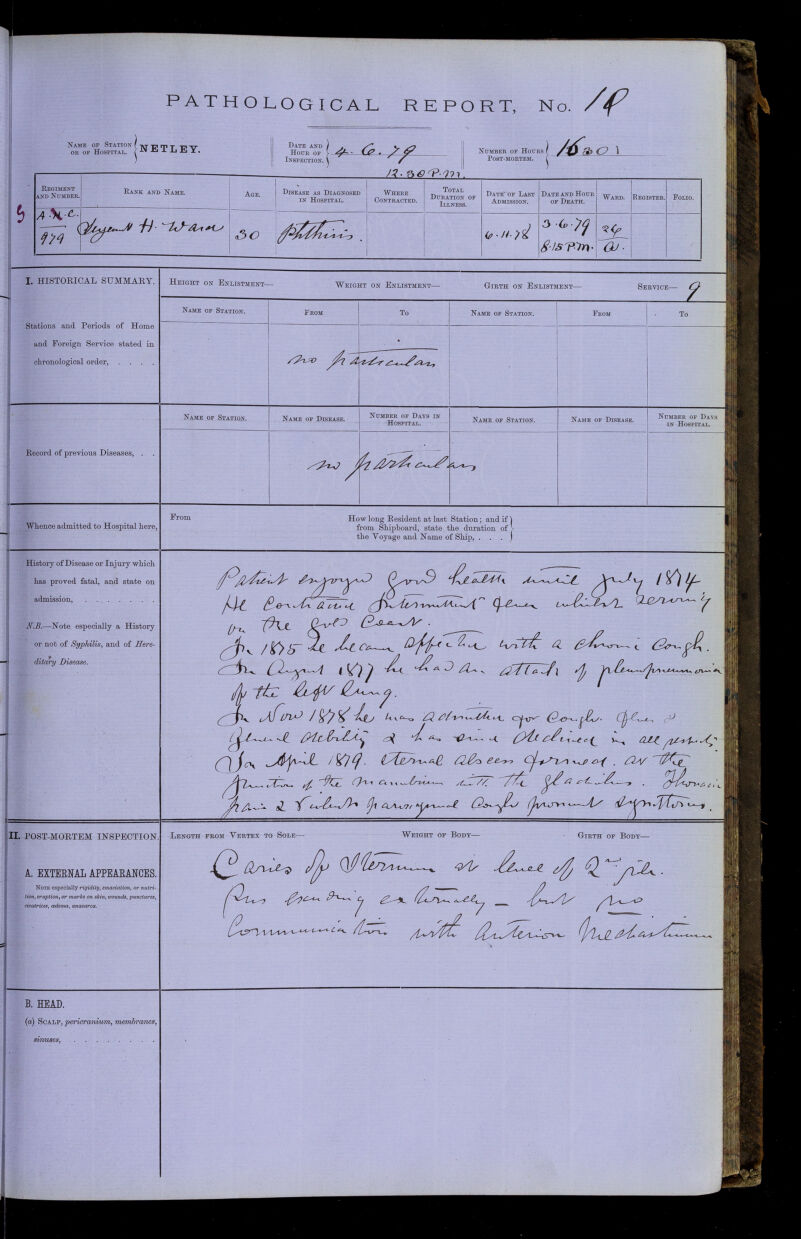 PATHOLOGICAL REPORT, No.
NAME OF STATION OR OF HOSPITAL. NETLEY.
DATE AND HOUR OF INSPECTION. 4. 6. 79
12.30 P.M.
NUMBER OF HOURS POST-MORTEM.
REGIMENT AND NUMBER. RANK AND NAME. AGE. DISEASE AS DIAGNOSED IN HOSPITAL. WHERE CONTRACTED. TOTAL DURATION OF ILLNESS. DATE OF LAST ADMISSION. DATE AND HOUR OF DEATH. WARD. REGISTER. FOLIO.
979 Sergeant H. Ward 30 Phthisis. 6.11.78 3.6.79 8.15 P.M.
I. HISTORICAL SUMMARY.
HEIGHT ON ENLISTMENT— WEIGHT ON ENLISTMENT— GIRTH ON ENLISTMENT— SERVICE— 9
Stations and Periods of Home and Foreign Service stated in chronological order, . . . .
NAME OF STATION. FROM TO NAME OF STATION. FROM TO
no particulars
Record of previous Diseases, . .
NAME OF STATION. NAME OF DISEASE. NUMBER OF DAYS IN HOSPITAL. NAME OF STATION. NAME OF DISEASE. NUMBER OF DAYS IN HOSPITAL.
no particulars
Whence admitted to Hospital here,
From How long Resident at last Station; and if from Shipboard, state the duration of the Voyage and Name of Ship, . . . .
History of Disease or Injury which has proved fatal, and state on admission, . . . . . . . .
N.B.—Note especially a History or not of Syphilis, and of Hereditary Disease.
Patient enjoyed good health until July 1874
He contracted Intermittent fever whilst serving
on the Gold Coast.
In 1875 he became affected with a chronic cough.
In August 1877 he had an attack of pleuropneumonia
of the left lung.
In Nov 1878 he was admitted for cough. fever &
general debility & has since declined in all respects
In April 1879. sternal abscess formed. at the
junction of the manubrium with the gladiolus. Thoracic
pain & violent paroxysmal cough prominent symptoms.
II. POST-MORTEM INSPECTION.
LENGTH FROM VERTEX TO SOLE— WEIGHT OF BODY— GIRTH OF BODY—
A. EXTERNAL APPEARANCES.
Note especially rigidity, emaciation, or nutrition, eruption, or marks on skin, wounds, punctures, cicatrices, œdema, anasarca.
Caries of Sternum at level of 2nd rib.
Pus exuding externally — but no
communication with Anterior Mediastinum
B. HEAD.
(a) SCALP, pericranium, membranes, sinuses, . . . . . . . . .